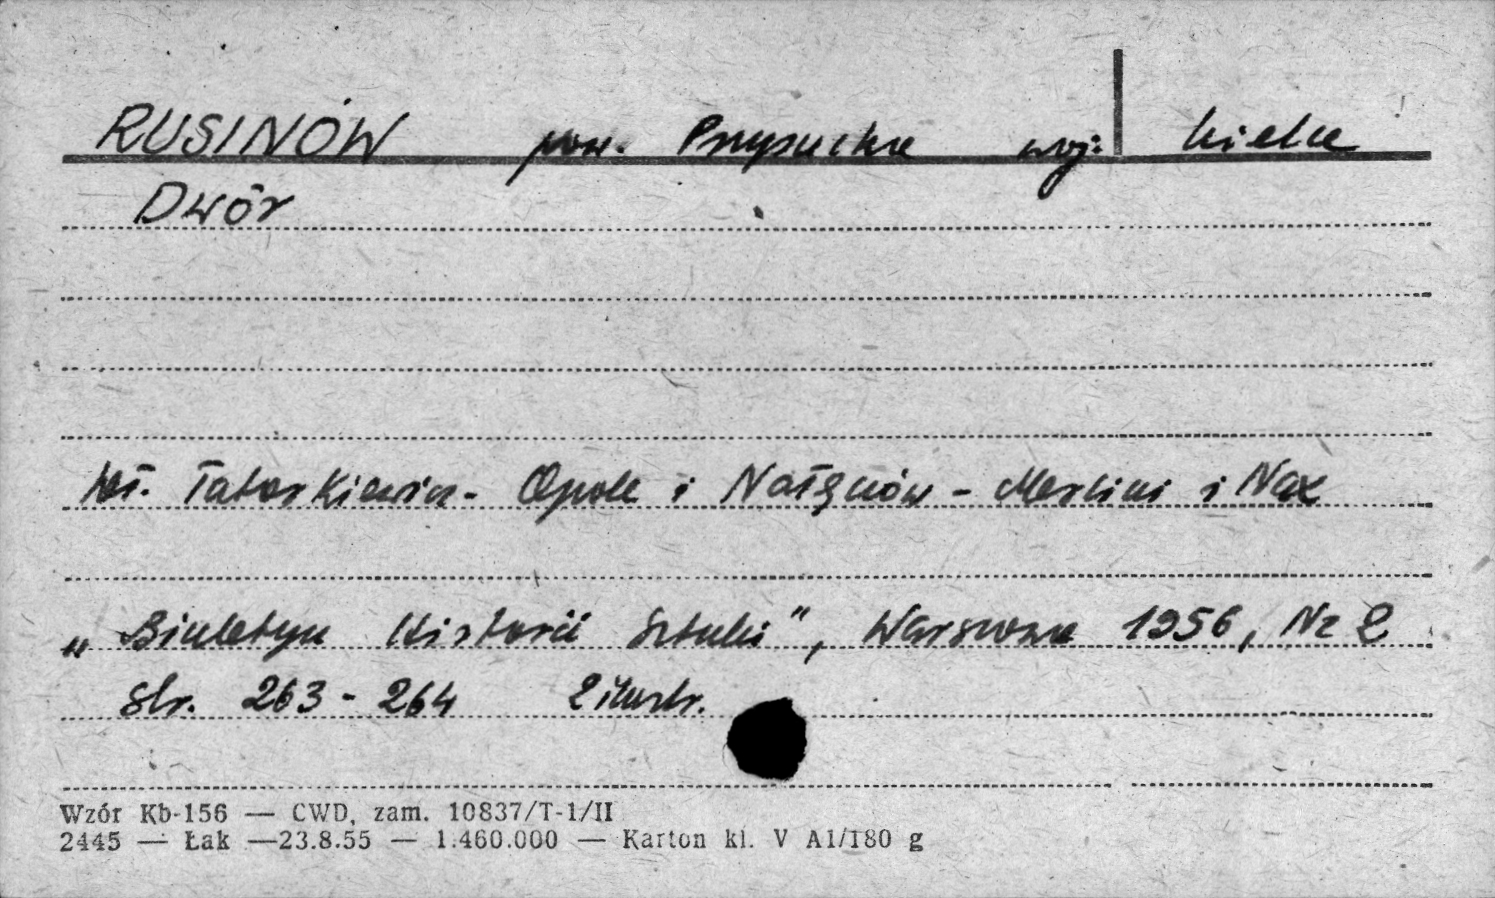 RUSINÓW pow. Przysucha woj. Kielce
Dwór
Wł. Tatarkiewicz - Opole i Nałęczów - Merlini i Nax
„Biuletyn Historii Sztuki", Warszawa 1956, Nr 2
str. 263 - 264 2 ilustr.
Wzór Kb-156 — CWD, zam. 10837/T-1/II
2445 — Łak —23.8.55 — 1.460.000 — Karton kl. V A1/180 g